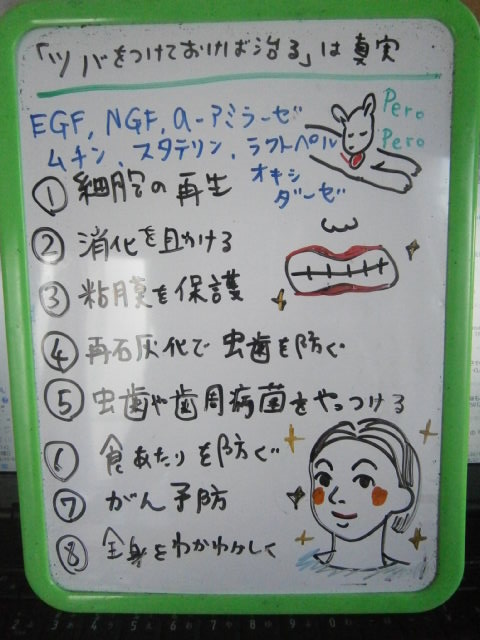 「ツバをつけておけば治る」は真実
EGF, NGF, α-アミラーゼ
ムチン、スタテリン、ラクトペル
オキシ
ダーゼ
Pero
Pero
① 細胞の再生
② 消化を助ける
③ 粘膜を保護
④ 再石灰化で虫歯を防ぐ
⑤ 虫歯や歯周病菌をやっつける
⑥ 食あたりを防ぐ
⑦ がん予防
⑧ 全身をわかわかしく